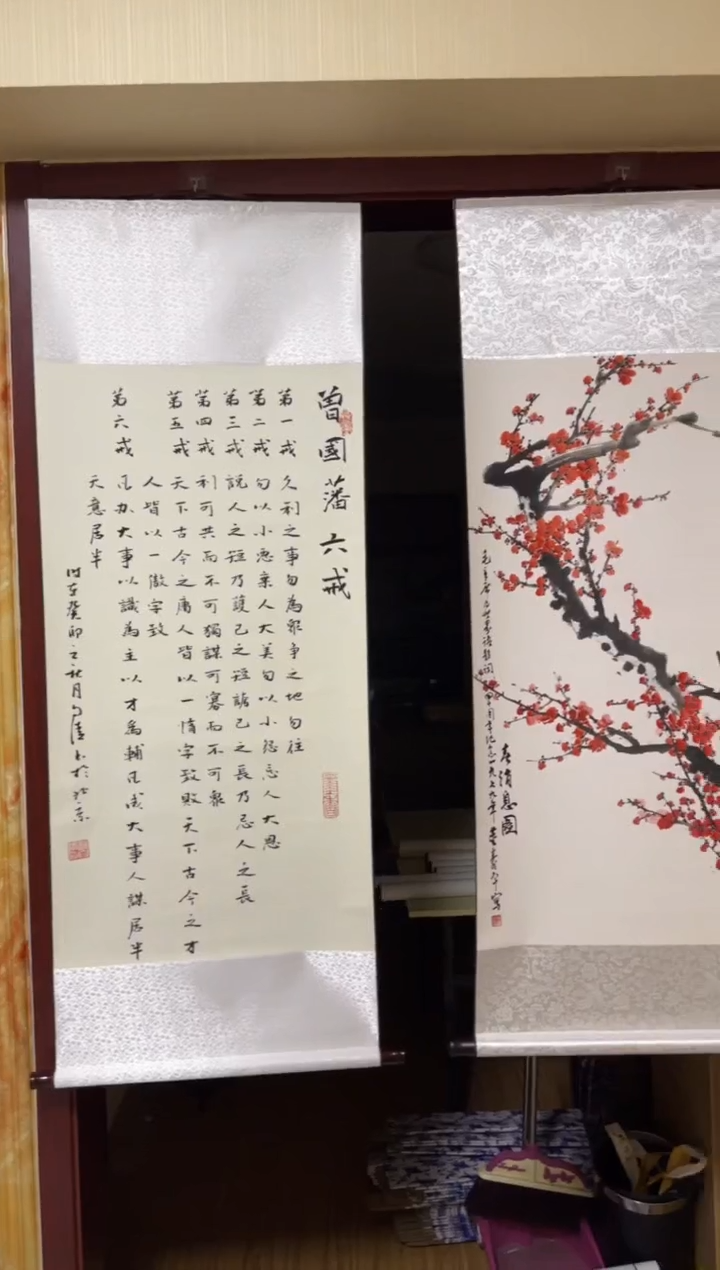 曾國藩六戒
第一戒 久利之事勿為眾爭之地勿往
第二戒 勿以小惡棄人大美勿以小怨忘人大恩
第三戒 說人之短乃護己之短誇己之長乃忌人之長
第四戒 利可共而不可獨謀可寡而不可眾
第五戒 天下古今之庸人皆以一惰字致敗天下古今之才
人皆以一傲字致
第六戒 凡办大事以識為主以才為輔凡成大事人謀居半
天意居半
时在癸卯之秋月
春消息圖
毛主席 一九七九年 董壽平寫